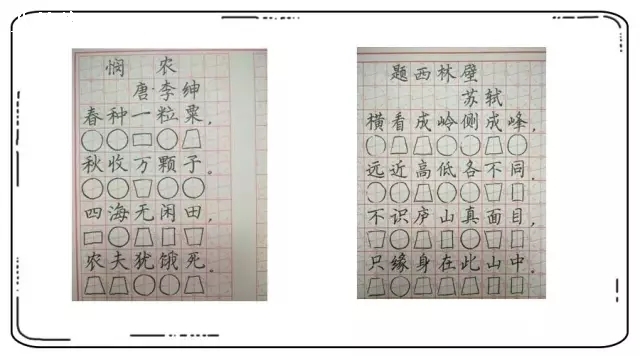 悯农
唐李绅
春种一粒粟，
秋收万颗子。
四海无闲田，
农夫犹饿死。
题西林壁
苏轼
横看成岭侧成峰，
远近高低各不同。
不识庐山真面目，
只缘身在此山中。